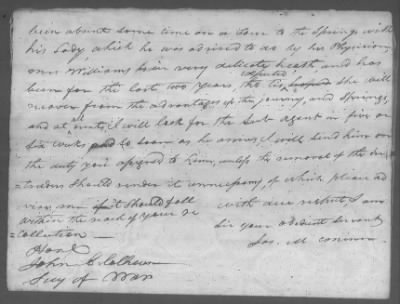 been absent some time on a tour to the Springs with
his Lady, which he was advised to do by her Physicians
Williams is in very delicate health, and has
been for the last two years, tho tis expected she will
recover from the advantages of the journey, and Springs,
and at I will look for the Sub Agent in five or
six weeks and so soon as he arrives, I will send him on
the duty you assigned to him, unless the removal of the in=
=truders should render it unnecessary, of which please ad
vise, me if it should fall
within the reach of your re
=collection —
with due respect, I am
Sir your obedient servant
Jos. McMinn
Honl
John C. Calhoun
Secy of War